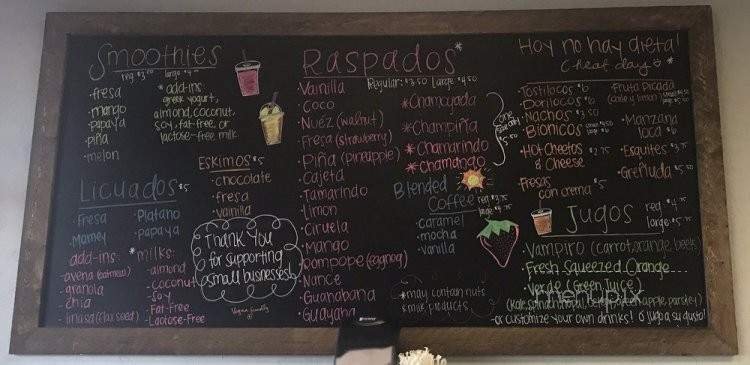 Smoothies
reg large
·fresa
·mango
·papaya
·piña
·melon
*add-ins:
greek yogurt,
almond, coconut,
soy, fat-free, or
lactose-free milk
Eskimos $5
·chocolate
·fresa
·vainilla
Licuados $5
·Fresa
·Mamey
·Platano
·papaya
add-ins:
·avena (oatmeal)
·granola
·chia
·linasa (flax seed)
*milks:
-almond
-coconut
-soy
-Fat-Free
-Lactose-Free
Thank you
for supporting
small businesses!
Vegan friendly
Raspados*
Regular: $3.50 Large $4.50
Vainilla
·Coco
·Nuez (walnut)
·Fresa (strawberry)
·Piña (pineapple)
·Cajeta
·Tamarindo
·Limon
·Ciruela
·Mango
·Rompope (eggnog)
·Nance
·Guanabana
·Guayaba
*Chamoyada
*Champiña
*Chamarindo
*Chamango
one size only
Blended
Coffee reg $3.75
large $4.75
·caramel
·mocha
·vanilla
*may contain nuts
& milk products
Hoy no hay dieta!
Cheat day *
·Tostilocos $6
·Dorilocos $6
·Nachos $3.50
·Bionicos
·Hot Cheetos $2.75
& Cheese
·Fresas
con crema $5
·Fruta Picada
(chile y limon)
·Manzana
loca $6
·Esquites $3.75
·Greñuda $5.50
Jugos reg. $4.75
large $5.75
·Vampiro (carrot, orange, beet)
·Fresh Squeezed Orange
·Verde (Green Juice)
(kale, spinach, pineapple, apple, parsley)
-or customize your own drinks! ó jugo a su gusto!